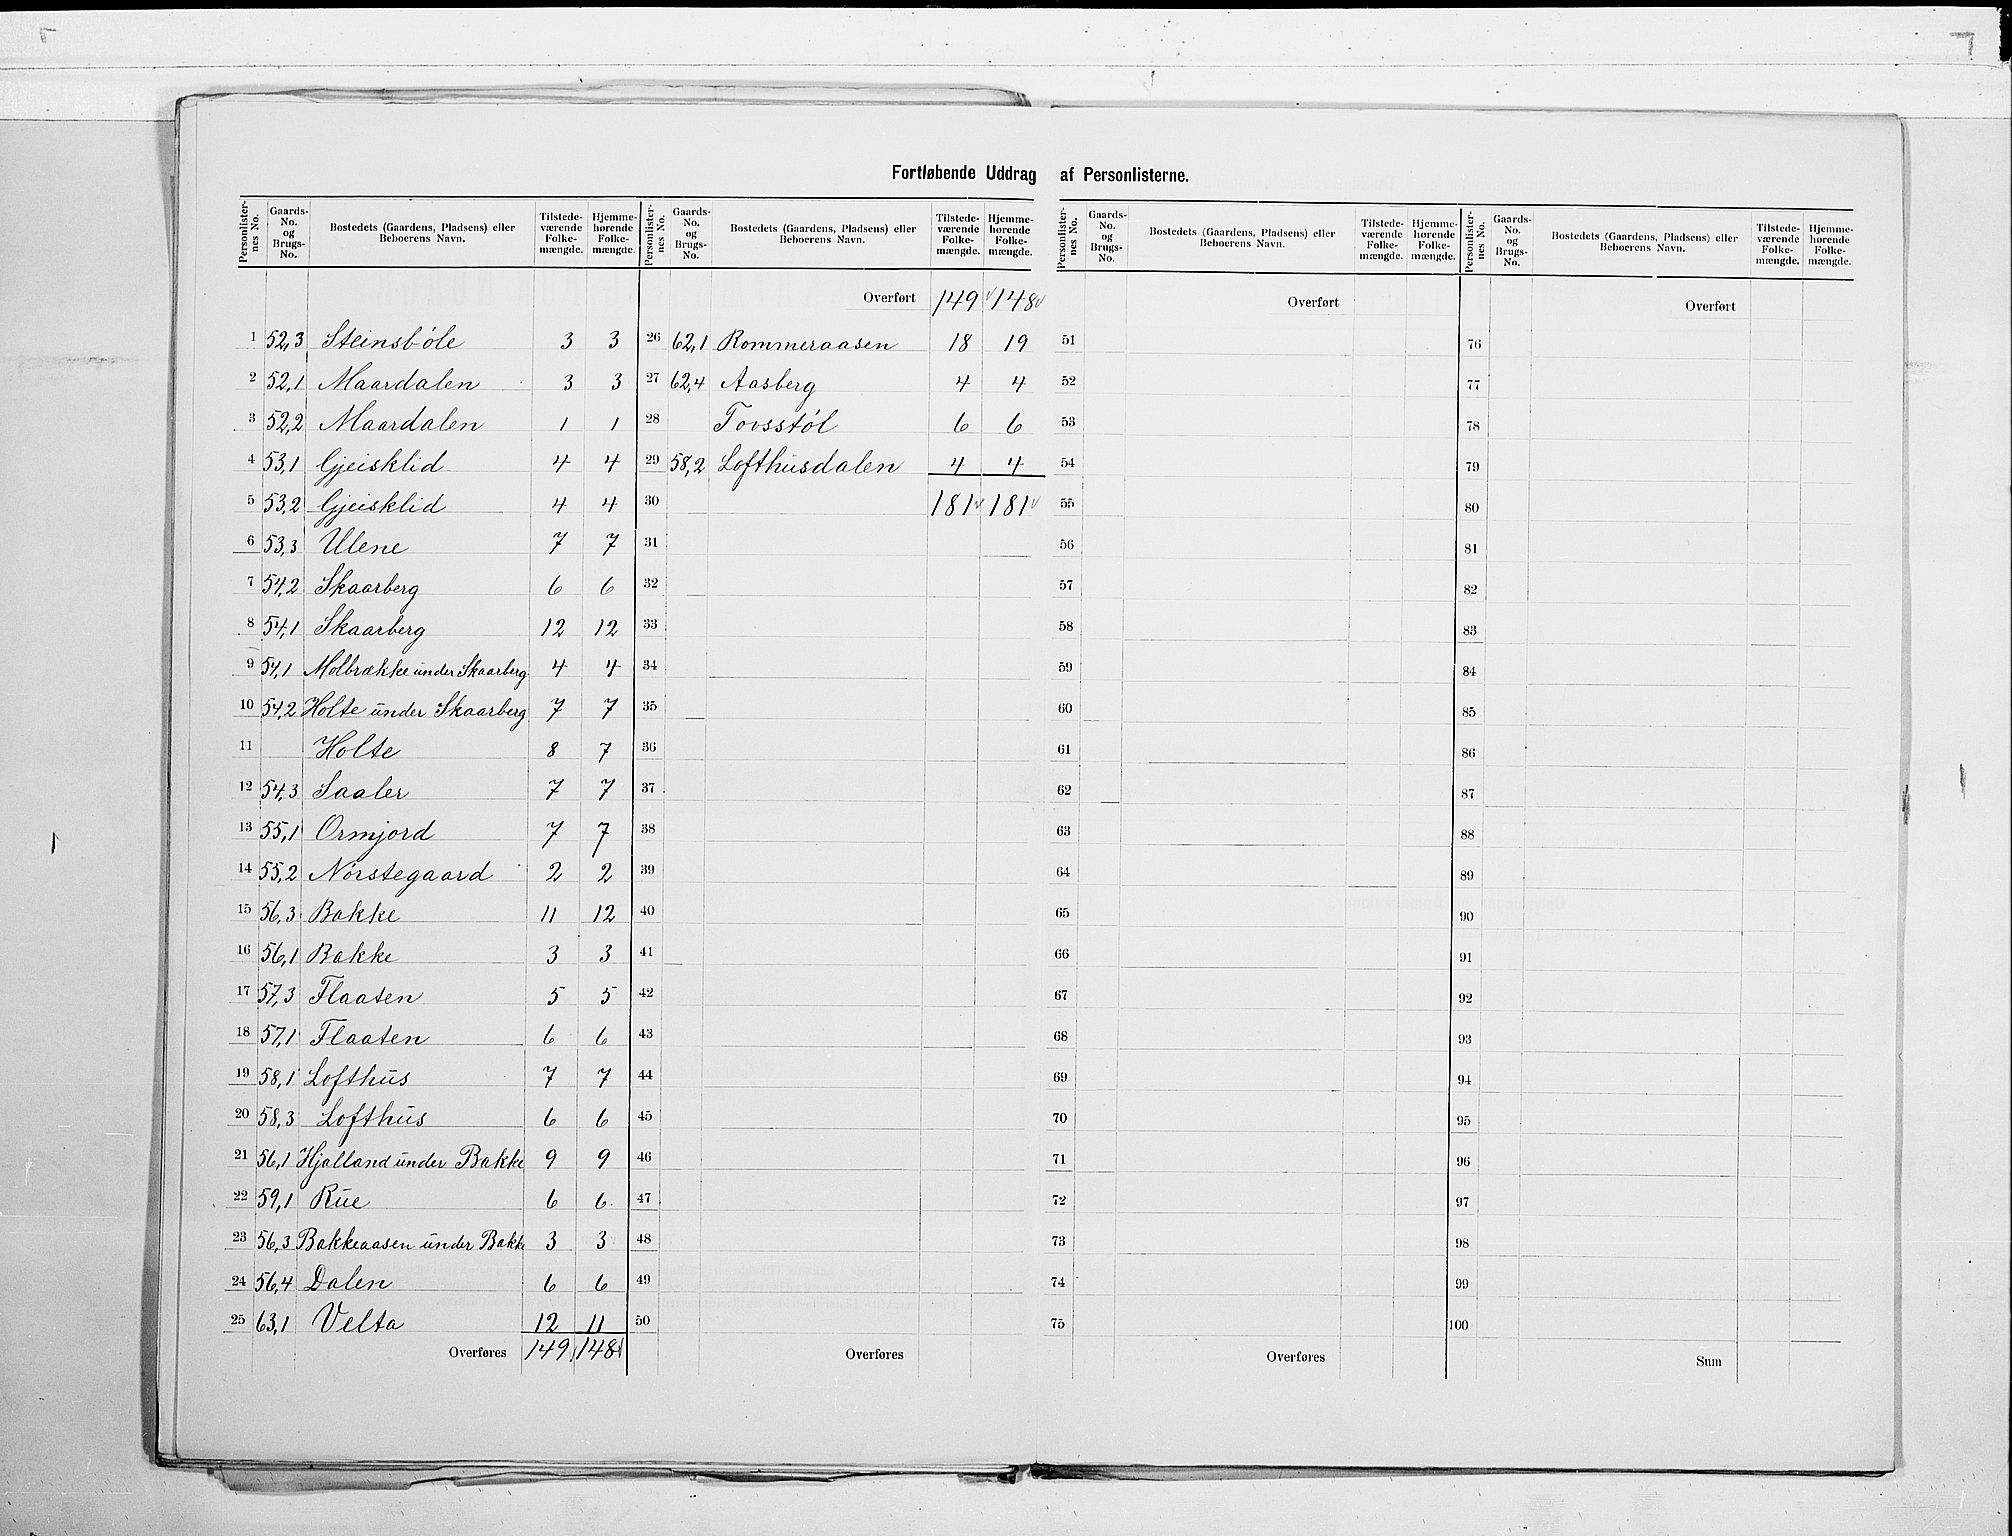 Fortløbende Uddrag af Personlisterne.
Personlister-nes No. | Gaards-No. og Brugs-No. | Bostedets (Gaardens, Pladsens) eller Beboerens Navn. | Tilstede-værende Folke-mængde. | Hjemme-hørende Folke-mængde.
1 52,3 Steinsbøle 3 3
2 52,1 Maardalen 3 3
3 52,2 Maardalen 1 1
4 53,1 Gjeisklid 4 4
5 53,2 Gjeisklid 4 4
6 53,3 Ulene 7 7
7 54,2 Skaarberg 6 6
8 54,1 Skaarberg 12 12
9 54,1 Molbrække under Skaarberg 4 4
10 54,2 Holte under Skaarberg 7 7
11 Holte 8 7
12 54,3 Saaler 7 7
13 55,1 Ormjord 7 7
14 55,2 Nørstegaard 2 2
15 56,3 Bakke 11 12
16 56,1 Bakke 3 3
17 57,3 Flaaten 5 5
18 57,1 Flaaten 6 6
19 58,1 Lofthus 7 7
20 58,3 Lofthus 6 6
21 56,1 Hjalland under Bakke 9 9
22 59,1 Rue 6 6
23 56,3 Bakkeaasen under Bakke 3 3
24 56,4 Dalen 6 6
25 63,1 Velta 12 11
Overføres 149 148
Personlister-nes No. | Gaards-No. og Brugs-No. | Bostedets (Gaardens, Pladsens) eller Beboerens Navn. | Tilstede-værende Folke-mængde. | Hjemme-hørende Folke-mængde.
Overført 149 148
26 62,1 Rommeraasen 18 19
27 62,4 Aasberg 4 4
28 Tovsstøl 6 6
29 58,2 Lofthusdalen 4 4
30 181 181
31
32
33
34
35
36
37
38
39
40
41
42
43
44
45
46
47
48
49
50
Overføres
Personlister-nes No. | Gaards-No. og Brugs-No. | Bostedets (Gaardens, Pladsens) eller Beboerens Navn. | Tilstede-værende Folke-mængde. | Hjemme-hørende Folke-mængde.
Overført
51
52
53
54
55
56
57
58
59
60
61
62
63
64
65
66
67
68
69
70
71
72
73
74
75
Overføres
Personlister-nes No. | Gaards-No. og Brugs-No. | Bostedets (Gaardens, Pladsens) eller Beboerens Navn. | Tilstede-værende Folke-mængde. | Hjemme-hørende Folke-mængde.
Overført
76
77
78
79
80
81
82
83
84
85
86
87
88
89
90
91
92
93
94
95
96
97
98
99
100
Sum